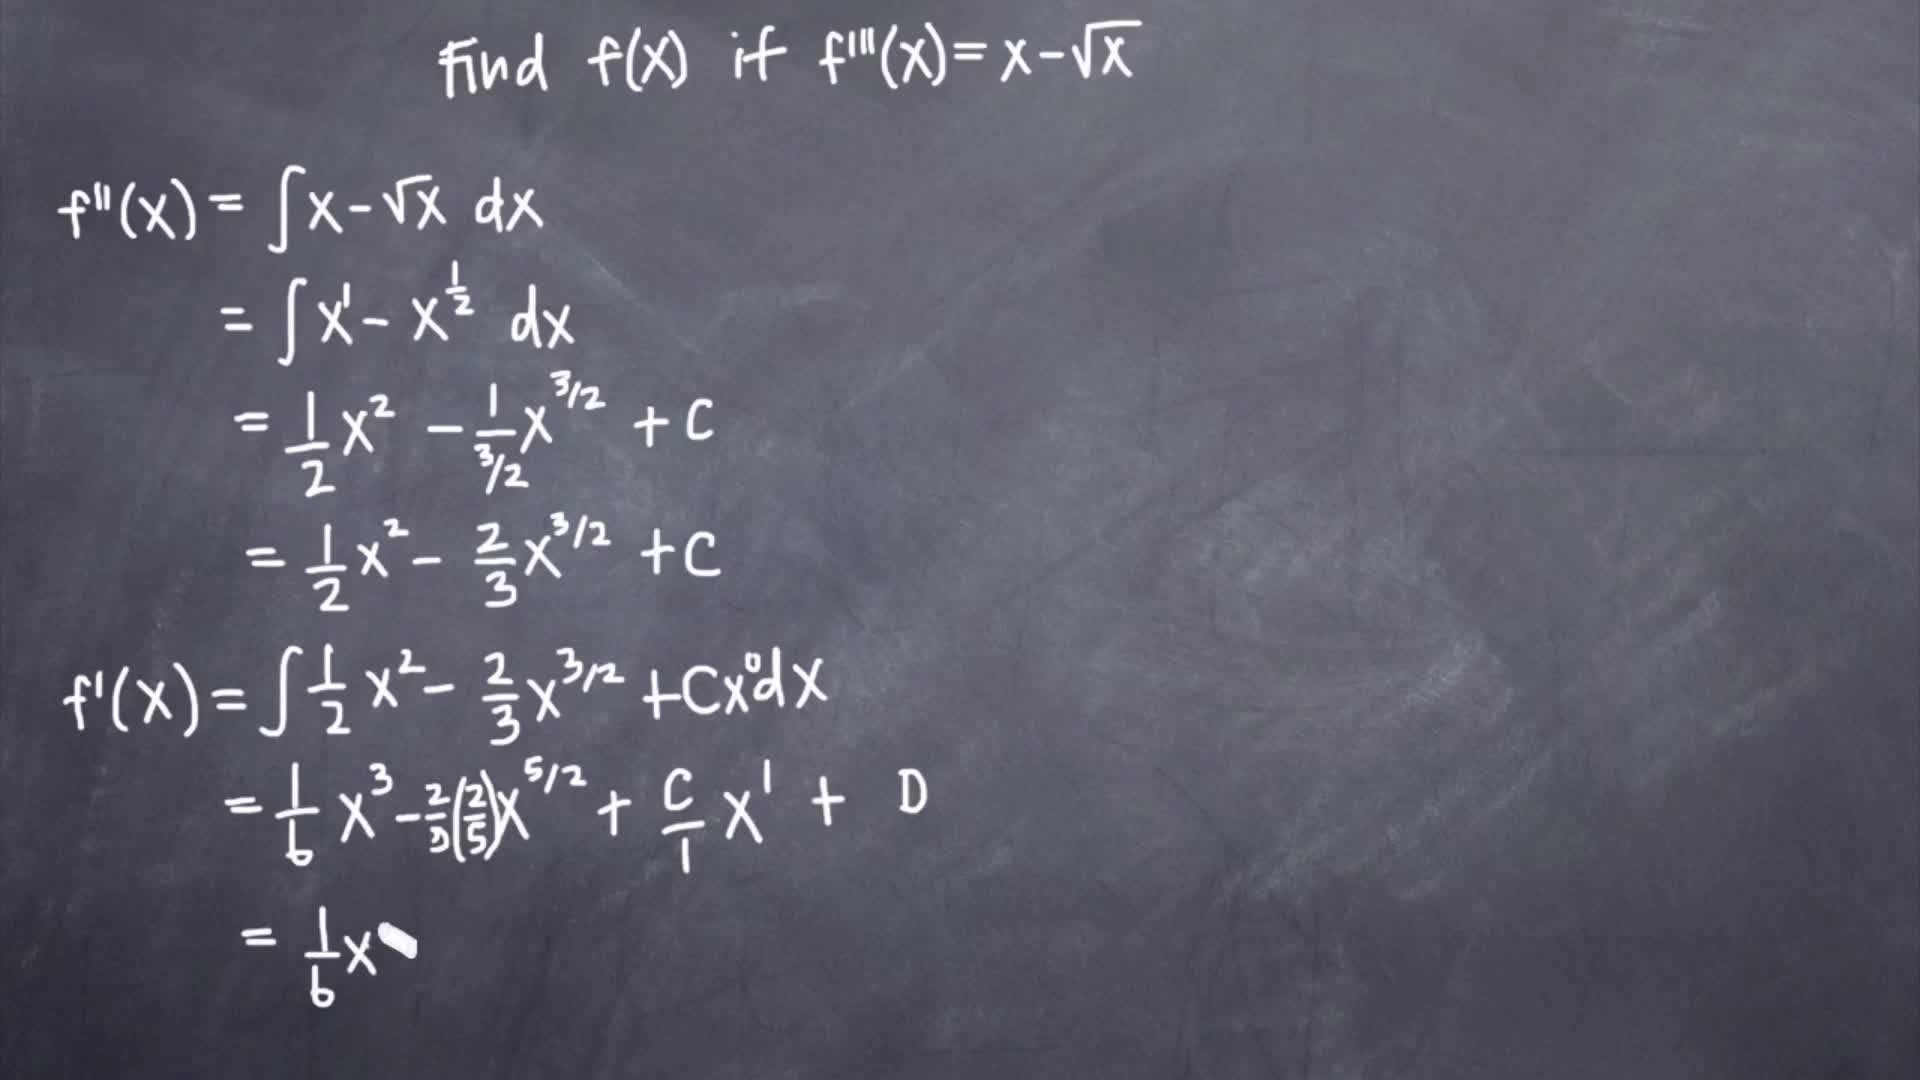 Find f(x) if f'''(x) = x - √x
f''(x) = ∫ x - √x dx
= ∫ x¹ - x^(1/2) dx
= 1/2 x² - 1/(3/2) x^(3/2) + C
= 1/2 x² - 2/3 x^(3/2) + C
f'(x) = ∫ 1/2 x² - 2/3 x^(3/2) + Cx⁰ dx
= 1/6 x³ - 2/3 (2/5) x^(5/2) + C/1 x¹ + D
= 1/6 x